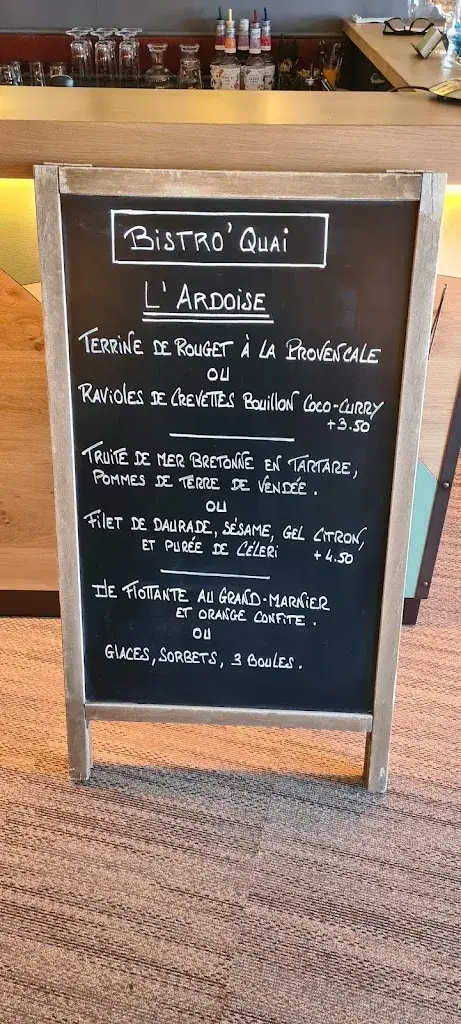 BISTRO'QUAI
L'ARDOISE
TERRINE DE ROUGET À LA PROVENCALE
OU
RAVIOLES DE CREVETTES BOUILLON COCO-CURRY
+3.50
TRUITE DE MER BRETONNE EN TARTARE,
POMMES DE TERRE DE VENDÉE.
OU
FILET DE DAURADE, SÉSAME, GEL CITRON,
ET PURÉE DE CÉLERI +4.50
ILE FLOTTANTE AU GRAND-MARNIER
ET ORANGE CONFITE.
OU
GLACES, SORBETS, 3 BOULES.